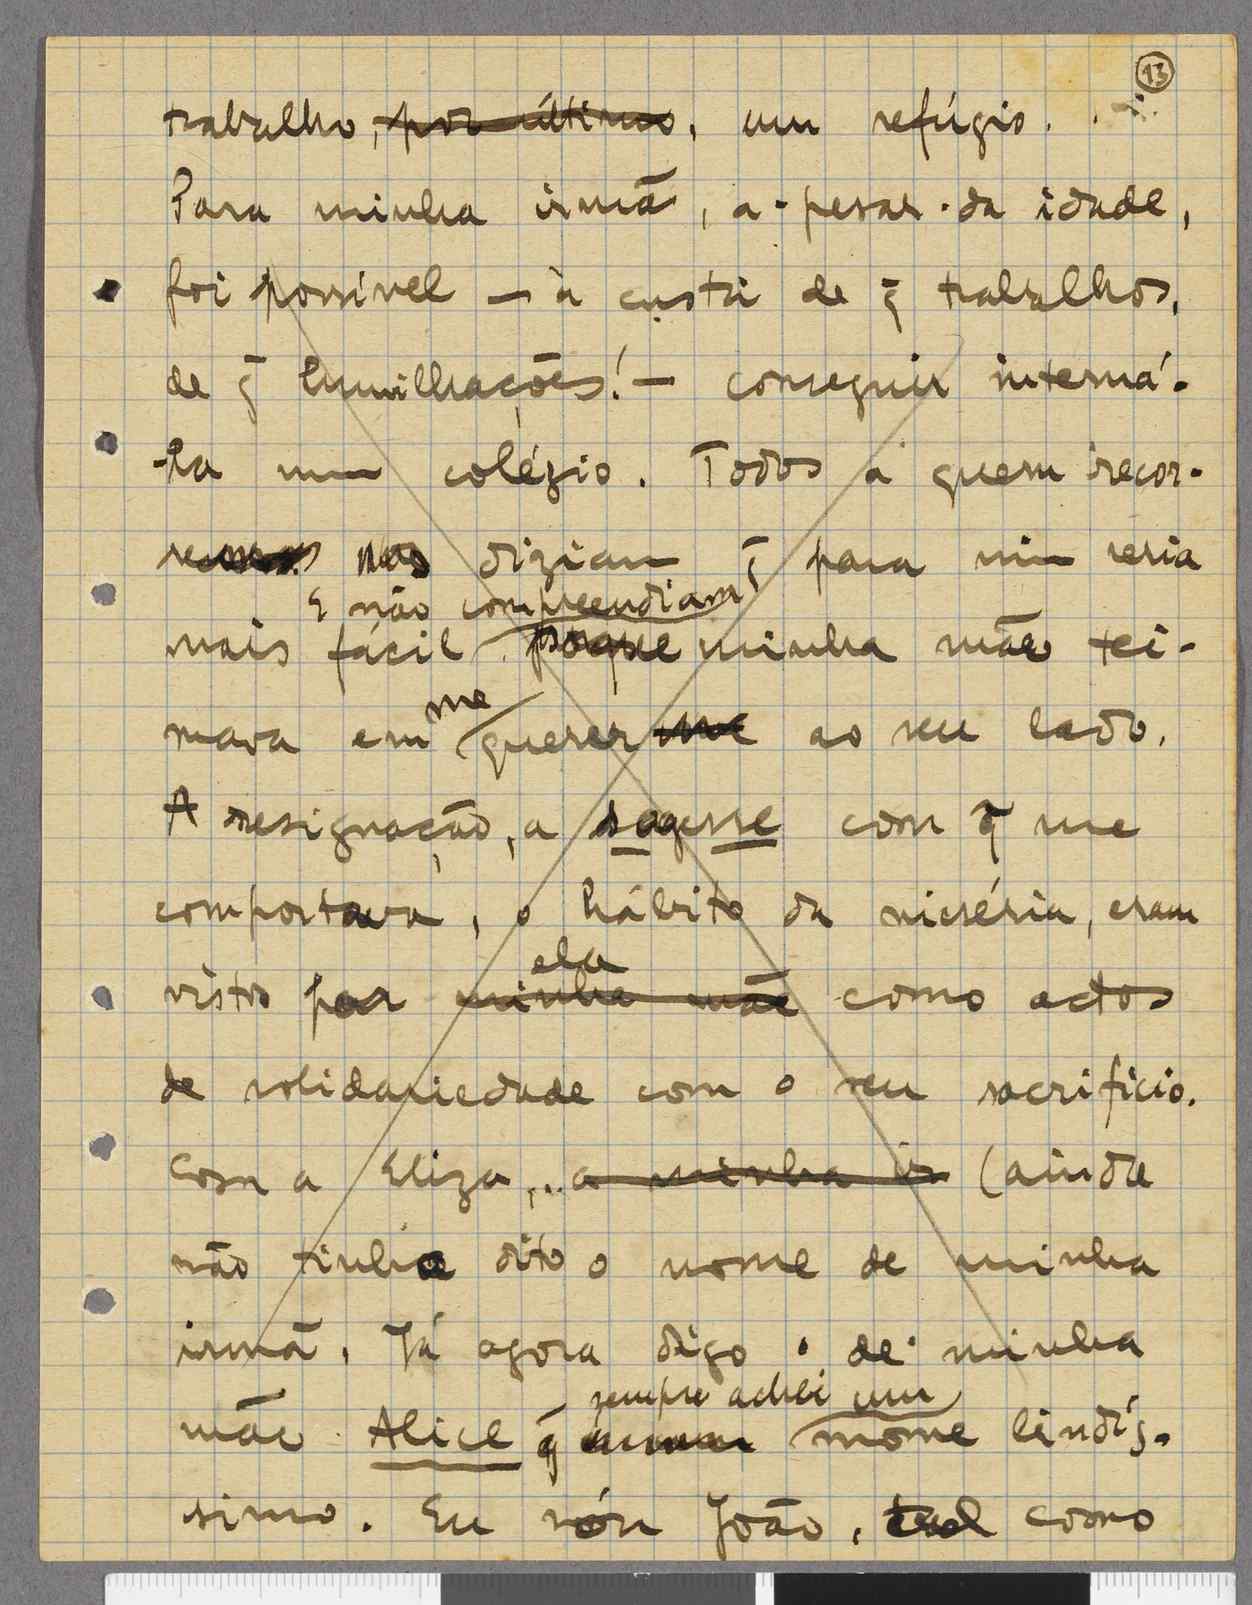 13
trabalho, por último, um refúgio.
Para minha irmã, a-pesar-da idade,
foi possível — à custa de q̃ trabalhos,
de q̃ humilhações! — conseguir interná-
-la num colégio. Todos a quem recor-
remos nos diziam q̃ para mim seria
E não compreendiam
mais fácil porque minha mãe tei-
me
mava em querer me ao seu lado.
A resignação, a sagesse com q̃ me
comportava, o hábito da miséria, eram
ela
vistos por minha mãe como actos
de solidariedade com o seu sacrifício.
Com a Eliza, a minha ir (ainda
não tinha dito o nome de minha
irmã. Já agora digo o de minha
sempre achei um
mãe Alice q̃ nome lindís-
simo. Eu sou João, tal como